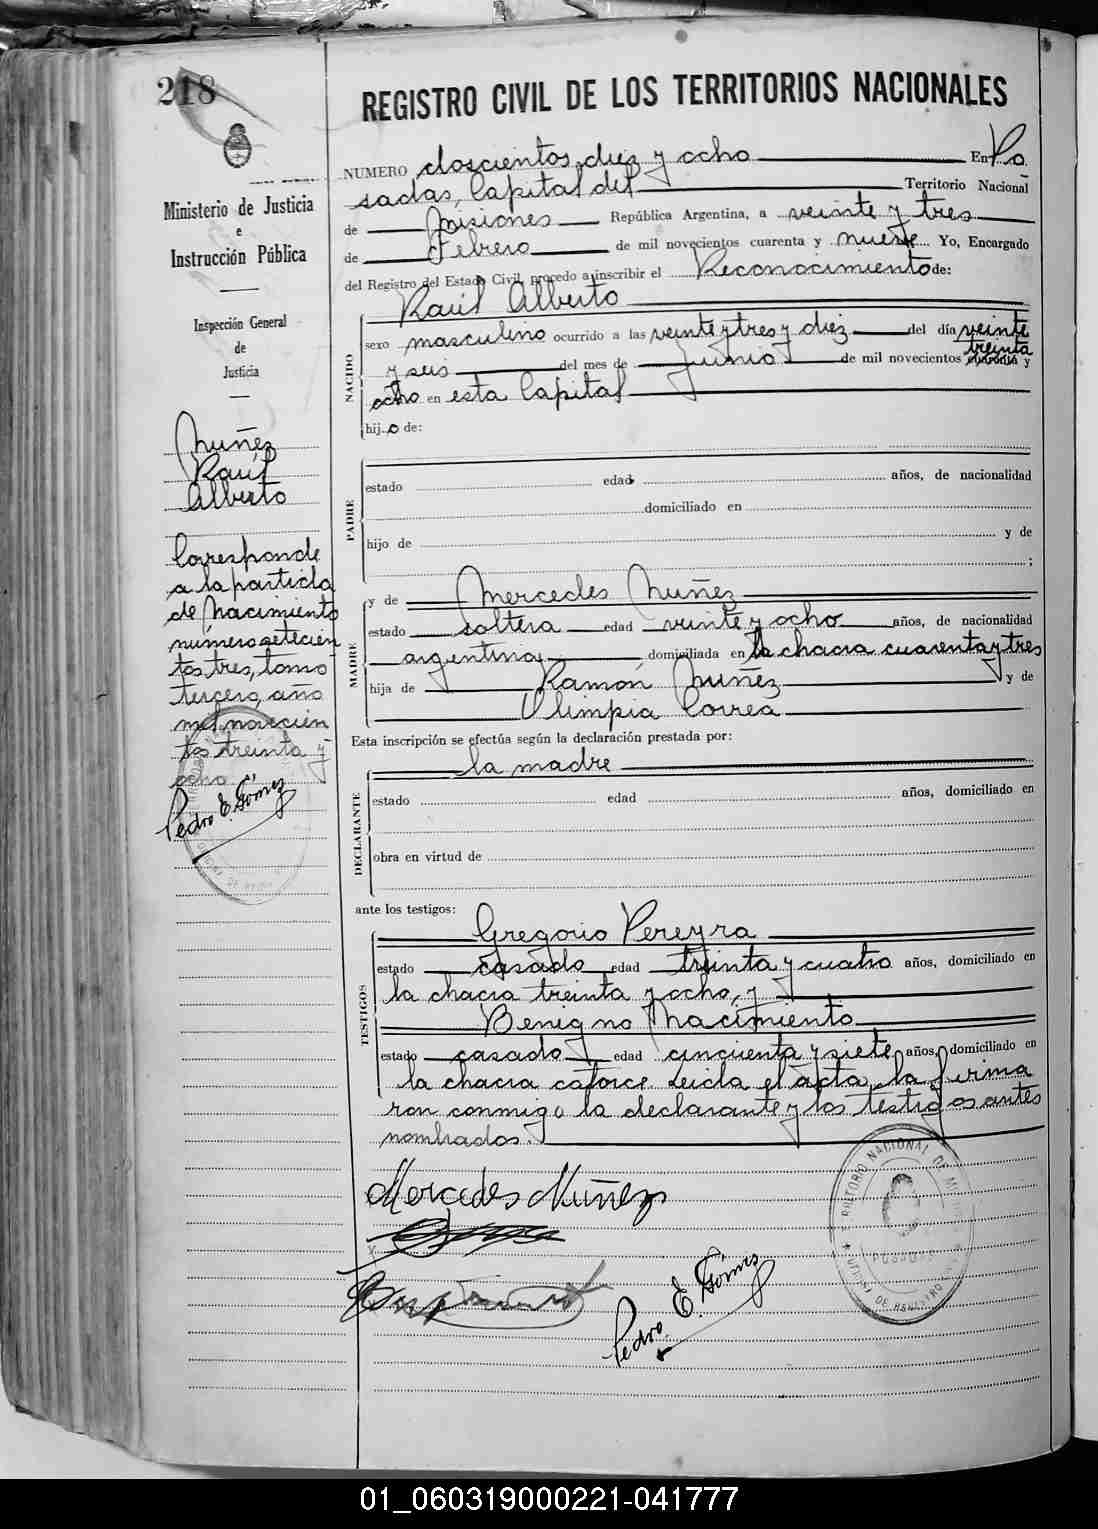 218
REGISTRO CIVIL DE LOS TERRITORIOS NACIONALES
Ministerio de Justicia
e
Instrucción Pública
Inspección General
de
Justicia
Nuñez
Raúl
Alberto
Corresponde
a la partida
de Nacimiento
número setecien
tos tres, tomo
tercero, año
mil novecien
tos treinta y
ocho
Pedro E. Gómez
NUMERO doscientos diez y ocho En Po
sadas, Capital del Territorio Nacional
de Misiones República Argentina, a veinte y tres
de Febrero de mil novecientos cuarenta y nueve Yo, Encargado
del Registro del Estado Civil, procedo a inscribir el Reconocimiento de:
Raúl Alberto
NACIDO
sexo masculino ocurrido a las veinte y tres y diez del día veinte
y seis del mes de Junio de mil novecientos cuarenta y treinta
ocho en esta Capital
hijo de:
PADRE
estado edad años, de nacionalidad
domiciliado en
hijo de y de
;
MADRE
y de Mercedes Nuñez
estado soltera edad veinte y ocho años, de nacionalidad
argentina, domiciliada en la chacra cuarenta y tres
hija de Ramón Nuñez y de
Olimpia Correa
Esta inscripción se efectúa según la declaración prestada por:
la madre
DECLARANTE
estado edad años, domiciliado en
obra en virtud de
ante los testigos:
TESTIGOS
Gregorio Pereyra
estado casado edad treinta y cuatro años, domiciliado en
la chacra treinta y ocho, y
Benigno Nacimiento
estado casado edad cincuenta y siete años, domiciliado en
la chacra catorce. Leida el acta, la firma
ron conmigo la declarante y los testigos antes
nombrados.
Mercedes Nuñez
Pedro E. Gómez
01_060319000221-041777